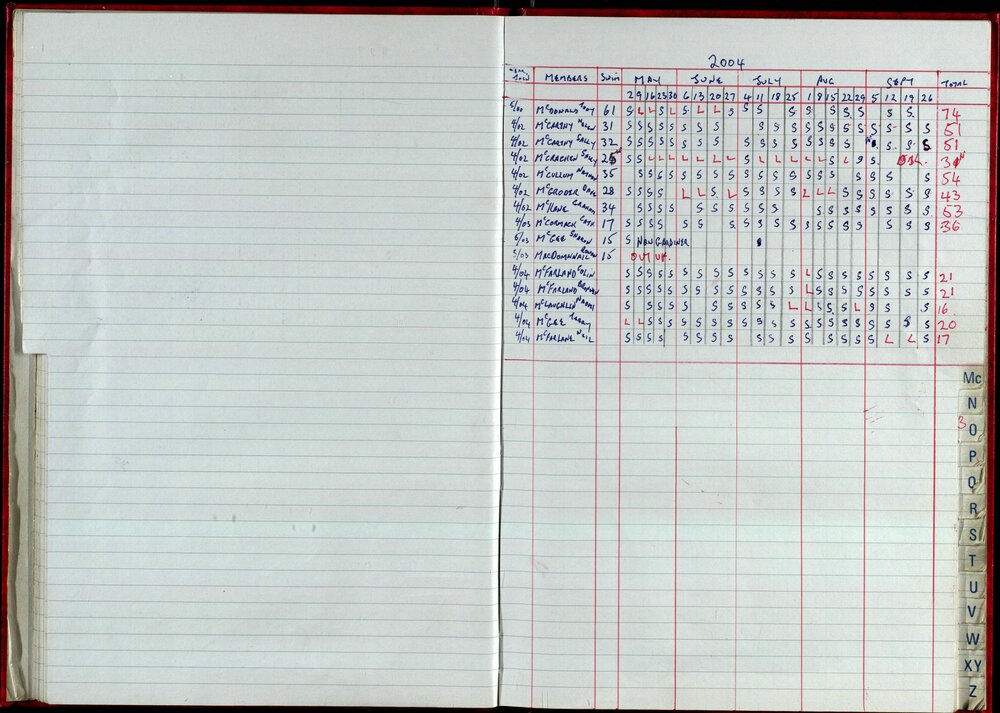 2004
YEAR JOINED MEMBERS SWIM MAY JUNE JULY AUG SEPT TOTAL
2 9 16 23 30 6 13 20 27 4 11 18 25 1 8 15 22 29 5 12 19 26
5/00 McDONALD TONY 61 S L L S L S L L S S S S S S S S S S S 74
4/02 McCARTHY HELEN 31 S S S S S S S S S S S S S S S S S S S S 51
4/02 McCARTHY SALLY 32 S S S S S S S S S S S S S S S S S S S S 51
4/02 McCRACKEN SALLY S S L L L L L L L S L L L L L L S L S S
4/02 McCULLUM 35 S S S S S S S S S S S S S S S S S S S S 54
4/02 McGRODER DAVE 28 S S S S L L S L S S S S L L L S S S S S S 43
4/02 McKANE GRAHAM 34 S S S S S S S S S S S S S S S S S S S 53
4/03 McCORMACK CATH 17 S S S S S S S S S S S S S S S S S S S S 36
5/03 McGEE SHARON 15 S NOW GARDINER
5/03 MACDOMHNAIL 15 OUT UK.
4/04 McFARLAND COLIN S S S S S S S S S S S S S L S S S S S S S S 21
4/04 McFARLAND S S S S S S S S S S S S S L S S S S S S S S 21
4/04 McLAUGHLIN S S S S S S S S S S S L L S S S L S S S 16
4/04 McGEE TERRY L L S S S S S S S S S S S S S S S S S S S S 20
4/04 McFARLANE NEIL S S S S S S S S S S S S S S S S S L L S 17
3
Mc
N
O
P
Q
R
S
T
U
V
W
XY
Z